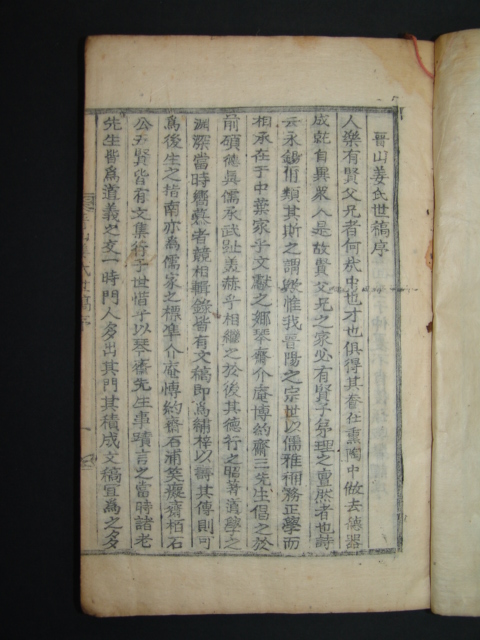 晋山姜氏世稿序
人樂有賢父兄者何哉中也才也俱得其養在熏陶中做去德器
成就自異衆人是故賢父兄之家必有賢子弟理之亶然者也詩
云永錫爾類其斯之謂歟惟我晉陽之宗世以儒雅相務正學而
相承在于中葉家乎文獻之鄉琴齋介庵博約齋三先生倡之於
前碩德眞儒承武趾美赫乎相繼之於後其德行之昭著道學之
淵深當時艷慕者競相輯錄皆有文稿卽爲繡梓以壽其傳則可
爲後生之指南亦爲儒家之標準介庵博約齋石浦笑癡齋栢石
公五賢皆有文集行于世惜乎以琴齋先生事蹟言之當時諸老
先生皆爲道義之交一時門人多出其門其積成文稿宜爲之多